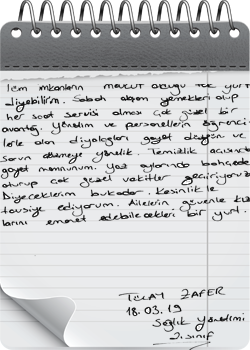 Tüm imkanların mevcut olduğu tek yurt
diyebilirim. Sabah akşam yemekleri olup
her saat servisi olması çok güzel bir
avantaj. Yönetim ve personellerin öğrenci-
lerle olan diyalogları gayet düzgün ve
sorun çözmeye yönelik. Temizlik açısından
gayet memnunum. Yaz aylarında bahçede
oturup çok güzel vakitler geçiriyoruz.
Diyeceklerim bu kadar. Kesinlikle
tavsiye ediyorum. Ailelerin güvenle kız-
larını emanet edebilecekleri bir yurt.
TÜLAY ZAFER
18.03.19
Sağlık Yönetimi
2.sınıf